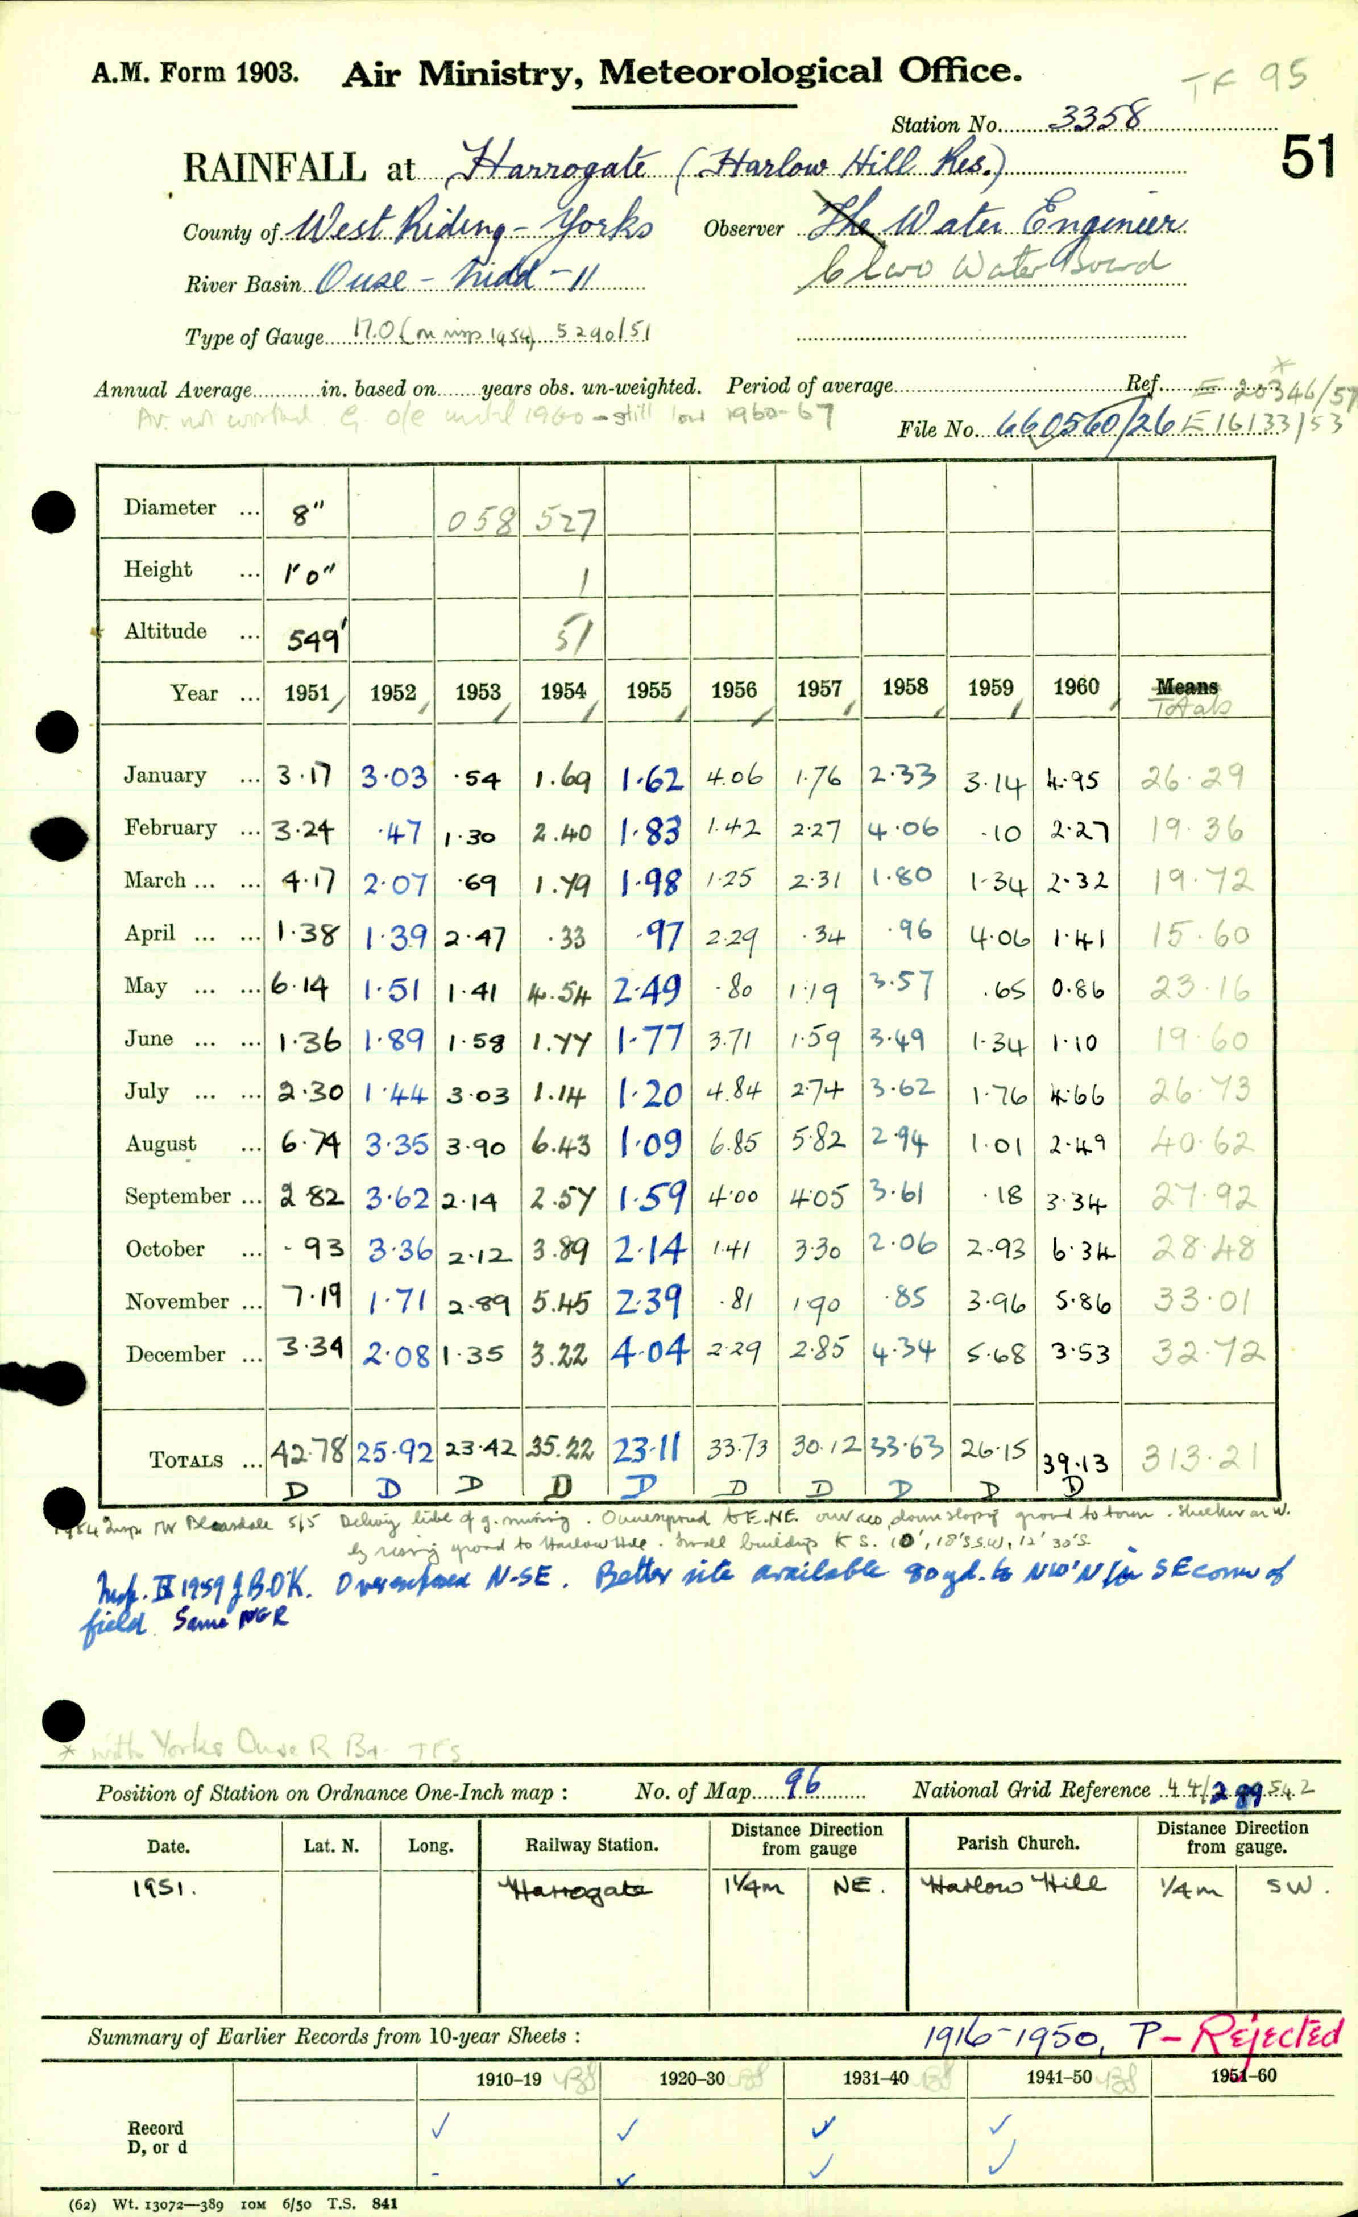 A.M. Form 1903. Air Ministry, Meteorological Office. TF 95
Station No. 3358
51
RAINFALL at Harrogate (Harlow Hill Res.)
County of West Riding - Yorks Observer The Water Engineer
River Basin Ouse - Nidd - 11 Claro Water Board
Type of Gauge 17.0 (on insp 1954) 5290/51
Annual Average in. based on years obs. un-weighted. Period of average Ref. E 20346/57
Av. not worked G o/e until 1960 - still low 1960-67
File No. 660560/26 E 16133/53
Diameter ... 8" 058 527
Height ... 1'0" 1
Altitude ... 549' 51
Year ... 1951 1952 1953 1954 1955 1956 1957 1958 1959 1960 Means
Totals
January ... 3.17 3.03 .54 1.69 1.62 4.06 1.76 2.33 3.14 4.95 26.29
February ... 3.24 .47 1.30 2.40 1.83 1.42 2.27 4.06 .10 2.27 19.36
March ... ... 4.17 2.07 .69 1.79 1.98 1.25 2.31 1.80 1.34 2.32 19.72
April ... ... 1.38 1.39 2.47 .33 .97 2.29 .34 .96 4.06 1.41 15.60
May ... ... 6.14 1.51 1.41 4.54 2.49 .80 1.19 3.57 .65 0.86 23.16
June ... ... 1.36 1.89 1.58 1.77 1.77 3.71 1.59 3.49 1.34 1.10 19.60
July ... ... 2.30 1.44 3.03 1.14 1.20 4.84 2.74 3.62 1.76 4.66 26.73
August ... 6.74 3.35 3.90 6.43 1.09 6.85 5.82 2.94 1.01 2.49 40.62
September ... 2.82 3.62 2.14 2.57 1.59 4.00 4.05 3.61 .18 3.34 27.92
October ... .93 3.36 2.12 3.89 2.14 1.41 3.30 2.06 2.93 6.34 28.48
November ... 7.19 1.71 2.89 5.45 2.39 .81 1.90 .85 3.96 5.86 33.01
December ... 3.34 2.08 1.35 3.22 4.04 2.29 2.85 4.34 5.68 3.53 32.72
TOTALS ... 42.78 25.92 23.42 35.22 23.11 33.73 30.12 33.63 26.15 39.13 313.21
D D D D D D D D D D
1954 Insp. TW Bleasdale 5/5 . Overexposed to E.NE. down sloping ground to town . Shelter on W.
by rising ground to Harlow Hill . Small buildings S. 10', 18' S.S.W, 12' 30° S.
Insp. IX 1959 J B.O.K. Overexposed N-SE. Better site available 80 yd. to N10°N in SE corner of
field. Same NGR
* with Yorks Ouse R Bd TFS
Position of Station on Ordnance One-Inch map : No. of Map 96 National Grid Reference 44/289542
Date. Lat. N. Long. Railway Station. Distance Direction from gauge Parish Church. Distance Direction from gauge.
1951. Harrogate 1¼m NE. Harlow Hill ¼m SW.
Summary of Earlier Records from 10-year Sheets : 1916-1950, P - Rejected
1910-19 1920-30 1931-40 1941-50 1951-60
Record
D, or d
(62) Wt. 13072—389 10M 6/50 T.S. 841